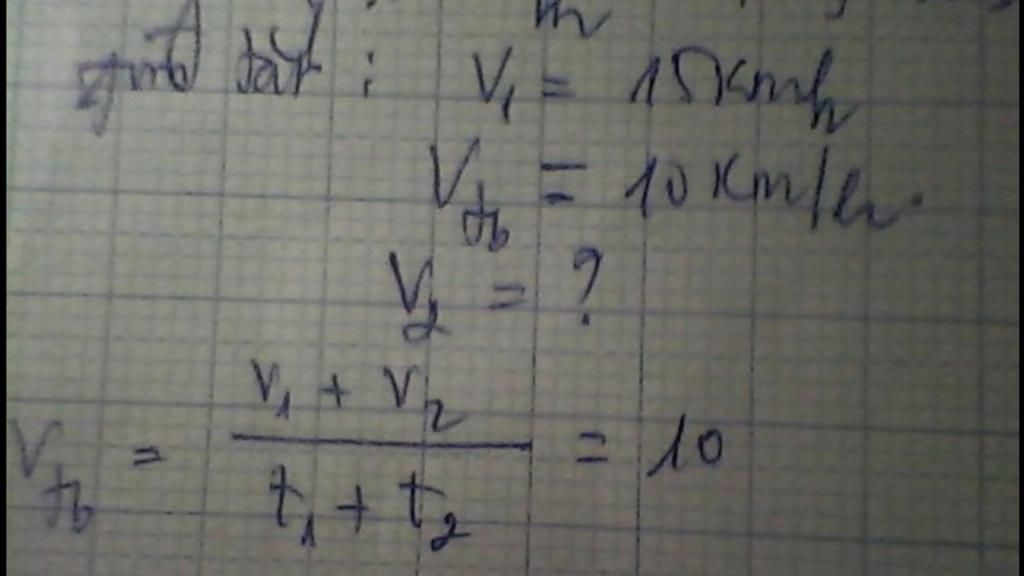 tóm tắt : V₁ = 15 Km/h
V_tb = 10 Km/h.
V₂ = ?
V_tb = (V₁ + V₂) / (t₁ + t₂) = 10